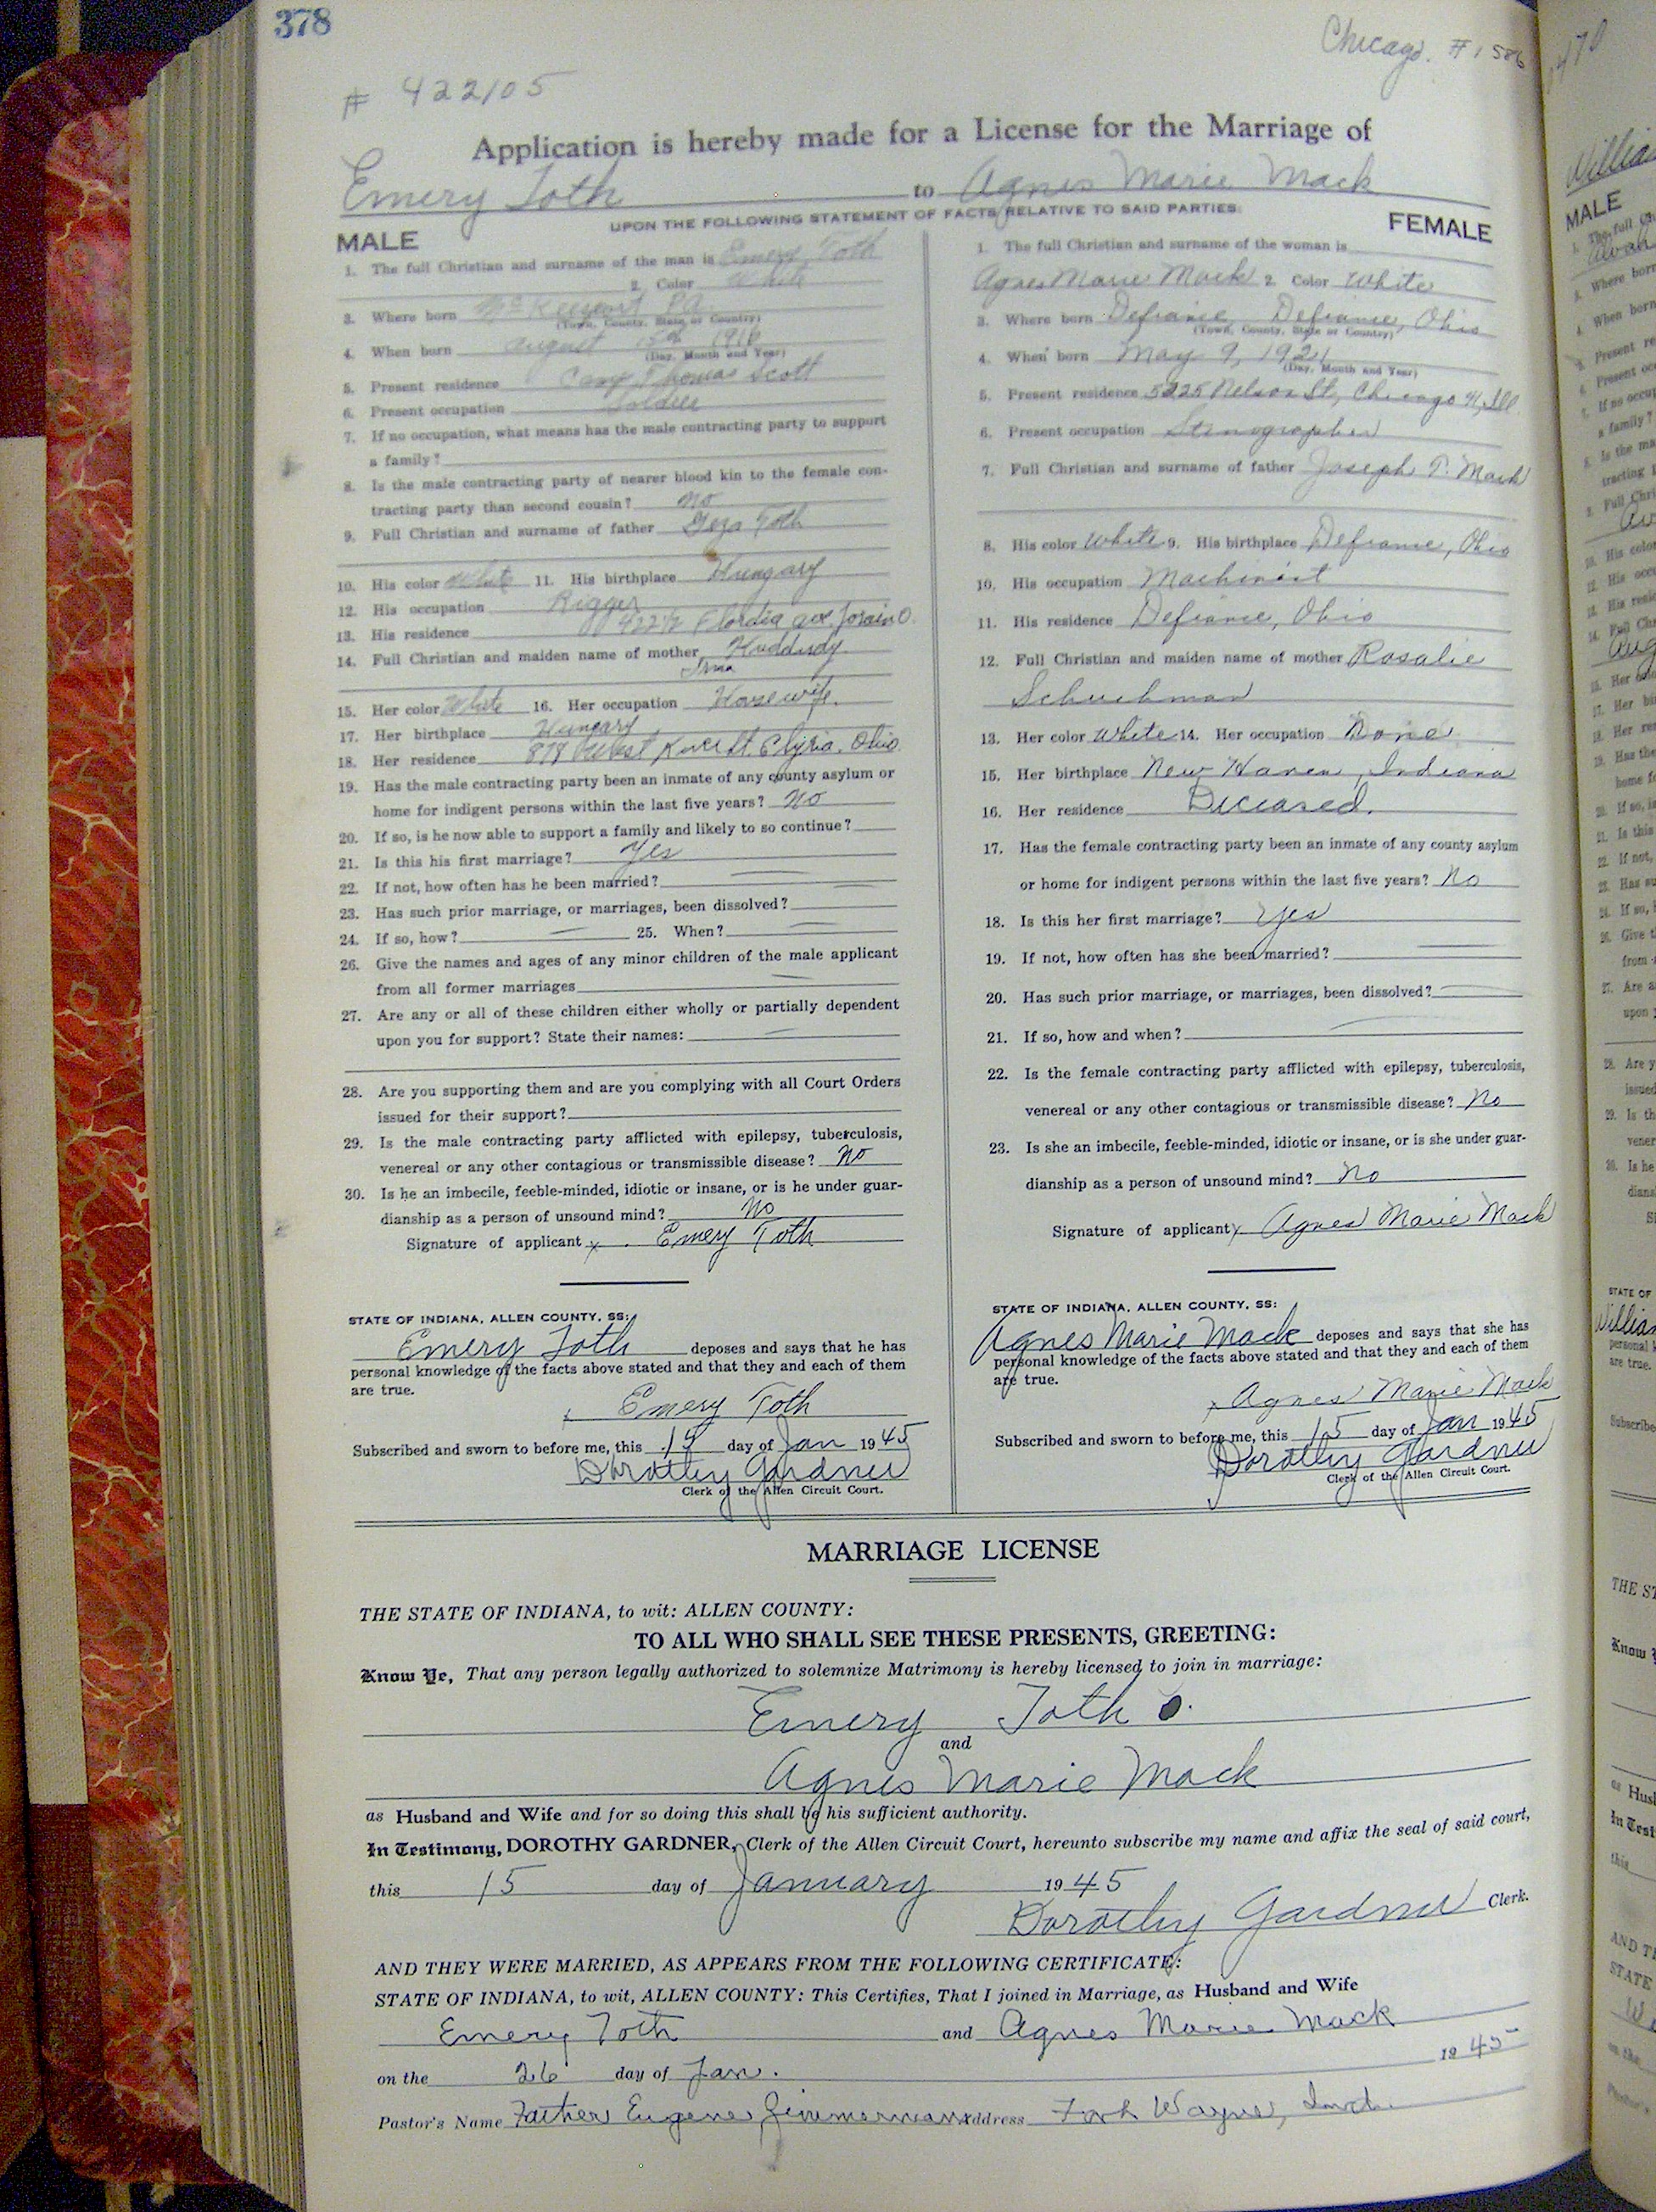 378
Chicago. # 1586
# 422105
Application is hereby made for a License for the Marriage of
Emery Toth to Agnes Marie Mack
UPON THE FOLLOWING STATEMENT OF FACTS RELATIVE TO SAID PARTIES.
MALE
1. The full Christian and surname of the man is Emery Toth
2. Color White
3. Where born McKeesport Pa.
(Town, County, State or Country)
4. When born August 1916
(Day, Month and Year)
5. Present residence Camp Thomas Scott
6. Present occupation Soldier
7. If no occupation, what means has the male contracting party to support
a family?
8. Is the male contracting party of nearer blood kin to the female con-
tracting party than second cousin? no
9. Full Christian and surname of father Geza Toth
10. His color White 11. His birthplace Hungary
12. His occupation Rigger
13. His residence Flordia ave. Lorain O.
14. Full Christian and maiden name of mother
Irma
15. Her color White 16. Her occupation Housewife.
17. Her birthplace Hungary
18. Her residence West St. Elyria, Ohio
19. Has the male contracting party been an inmate of any county asylum or
home for indigent persons within the last five years? No
20. If so, is he now able to support a family and likely to so continue?
21. Is this his first marriage? Yes
22. If not, how often has he been married?
23. Has such prior marriage, or marriages, been dissolved?
24. If so, how? 25. When?
26. Give the names and ages of any minor children of the male applicant
from all former marriages
27. Are any or all of these children either wholly or partially dependent
upon you for support? State their names:
28. Are you supporting them and are you complying with all Court Orders
issued for their support?
29. Is the male contracting party afflicted with epilepsy, tuberculosis,
venereal or any other contagious or transmissible disease? No
30. Is he an imbecile, feeble-minded, idiotic or insane, or is he under guar-
dianship as a person of unsound mind? No
Signature of applicant x Emery Toth
STATE OF INDIANA, ALLEN COUNTY, SS:
Emery Toth deposes and says that he has
personal knowledge of the facts above stated and that they and each of them
are true.
x Emery Toth
Subscribed and sworn to before me, this 15 day of Jan 1945
Dorothy Gardner
Clerk of the Allen Circuit Court.
FEMALE
1. The full Christian and surname of the woman is
Agnes Marie Mack 2. Color White
3. Where born Defiance, Defiance, Ohio
(Town, County, State or Country)
4. When born May 9, 1921
(Day, Month and Year)
5. Present residence 5225 Nelson St, Chicago 41, Ill
6. Present occupation Stenographer
7. Full Christian and surname of father Joseph P. Mack
8. His color White 9. His birthplace Defiance, Ohio
10. His occupation Machinist
11. His residence Defiance, Ohio
12. Full Christian and maiden name of mother Rosalie
Schuchman
13. Her color White 14. Her occupation None
15. Her birthplace New Haven, Indiana
16. Her residence Deceased.
17. Has the female contracting party been an inmate of any county asylum
or home for indigent persons within the last five years? No
18. Is this her first marriage? Yes
19. If not, how often has she been married?
20. Has such prior marriage, or marriages, been dissolved?
21. If so, how and when?
22. Is the female contracting party afflicted with epilepsy, tuberculosis,
venereal or any other contagious or transmissible disease? No
23. Is she an imbecile, feeble-minded, idiotic or insane, or is she under guar-
dianship as a person of unsound mind? No
Signature of applicant x Agnes Marie Mack
STATE OF INDIANA, ALLEN COUNTY, SS:
Agnes Marie Mack deposes and says that she has
personal knowledge of the facts above stated and that they and each of them
are true.
x Agnes Marie Mack
Subscribed and sworn to before me, this 15 day of Jan 1945
Dorothy Gardner
Clerk of the Allen Circuit Court.
MARRIAGE LICENSE
THE STATE OF INDIANA, to wit: ALLEN COUNTY:
TO ALL WHO SHALL SEE THESE PRESENTS, GREETING:
Know Ye, That any person legally authorized to solemnize Matrimony is hereby licensed to join in marriage:
Emery Toth
and
Agnes Marie Mack
as Husband and Wife and for so doing this shall be his sufficient authority.
In Testimony, DOROTHY GARDNER, Clerk of the Allen Circuit Court, hereunto subscribe my name and affix the seal of said court,
this 15 day of January 1945
Dorothy Gardner Clerk.
AND THEY WERE MARRIED, AS APPEARS FROM THE FOLLOWING CERTIFICATE:
STATE OF INDIANA, to wit, ALLEN COUNTY: This Certifies, That I joined in Marriage, as Husband and Wife
Emery Toth and Agnes Marie Mack
on the 26 day of Jan. 1945
Pastor's Name Father Eugene Zimmerman Address Fort Wayne, Ind.